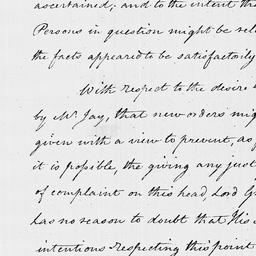 ascertained; and to the intent the
Persons in question might be
the facts appeared to be satisfactorily
With respect to the desire
by Mr. Jay, that new orders
given with a view to prevent, as
it is possible, the giving any just
of complaint on this head, Lord
has no reason to doubt that His
intentions respecting this point